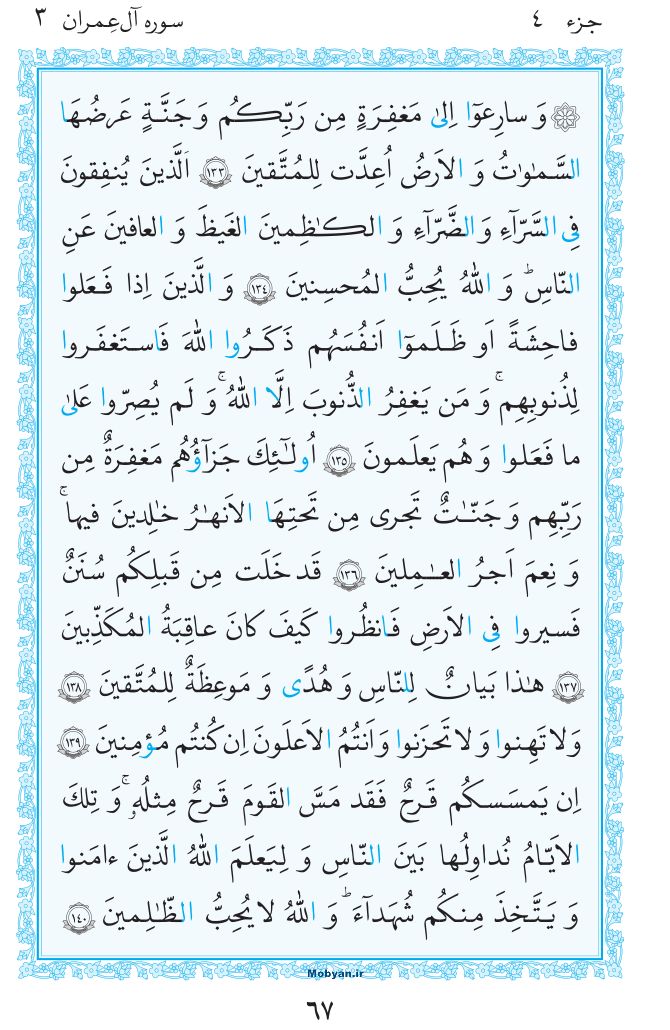 جزء ٤ سوره آل‌عمران ٣
۞ وَ سارِعوٓا اِلىٰ مَغفِرَةٍ مِن رَبِّكُم وَ جَنَّةٍ عَرضُهَا
السَّمٰوٰتُ وَ الاَرضُ اُعِدَّت لِلمُتَّقينَ ﴿١٣٣﴾ اَلَّذينَ يُنفِقونَ
فِى السَّرّآءِ وَ الضَّرّآءِ وَ الكٰظِمينَ الغَيظَ وَ العافينَ عَنِ
النّاسِ ۗ وَ اللهُ يُحِبُّ المُحسِنينَ ﴿١٣٤﴾ وَ الَّذينَ اِذا فَعَلوا
فاحِشَةً اَو ظَلَموٓا اَنفُسَهُم ذَكَرُوا اللهَ فَاستَغفَروا
لِذُنوبِهِم ۚ وَ مَن يَغفِرُ الذُّنوبَ اِلَّا اللهُ ۚ وَ لَم يُصِرّوا عَلىٰ
ما فَعَلوا وَ هُم يَعلَمونَ ﴿١٣٥﴾ اُولٰٓئِكَ جَزآؤُهُم مَغفِرَةٌ مِن
رَبِّهِم وَ جَنّٰتٌ تَجرى مِن تَحتِهَا الاَنهٰرُ خٰلِدينَ فيها ۚ
وَ نِعمَ اَجرُ العٰمِلينَ ﴿١٣٦﴾ قَد خَلَت مِن قَبلِكُم سُنَنٌ
فَسيروا فِى الاَرضِ فَانظُروا كَيفَ كانَ عاقِبَةُ المُكَذِّبينَ
﴿١٣٧﴾ هٰذا بَيانٌ لِلنّاسِ وَ هُدًى وَ مَوعِظَةٌ لِلمُتَّقينَ ﴿١٣٨﴾
وَ لا تَهِنوا وَ لا تَحزَنوا وَ اَنتُمُ الاَعلَونَ اِن كُنتُم مُؤمِنينَ ﴿١٣٩﴾
اِن يَمسَسكُم قَرحٌ فَقَد مَسَّ القَومَ قَرحٌ مِثلُهٗ ۚ وَ تِلكَ
الاَيّامُ نُداوِلُها بَينَ النّاسِ وَ لِيَعلَمَ اللهُ الَّذينَ ءامَنوا
وَ يَتَّخِذَ مِنكُم شُهَدآءَ ۗ وَ اللهُ لا يُحِبُّ الظّٰلِمينَ ﴿١٤٠﴾
Mobyan.ir
٦٧